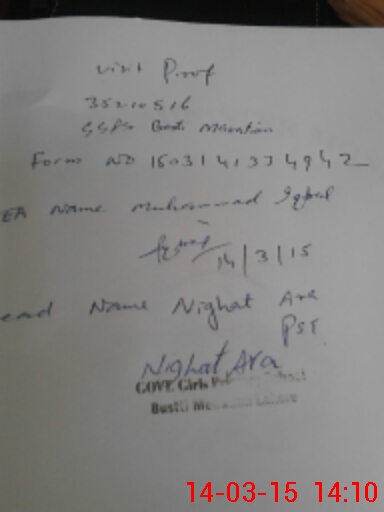 Visit Proof
35210516
GGPS Basti
Form NO 15031413374942
EA Name Muhammad Iqbal
14/3/15
ead Name Nighat Ara
PST
Nighat Ara
GOVT. Girls
Basti
14-03-15 14:10